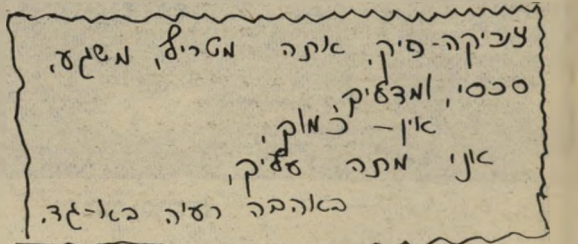 צביקה-פיק, אתה מטריף, משגע,
סכסי, ומדליק,
אין – כמוך,
אני מתה עליך,
באהבה רעיה בא-גד.